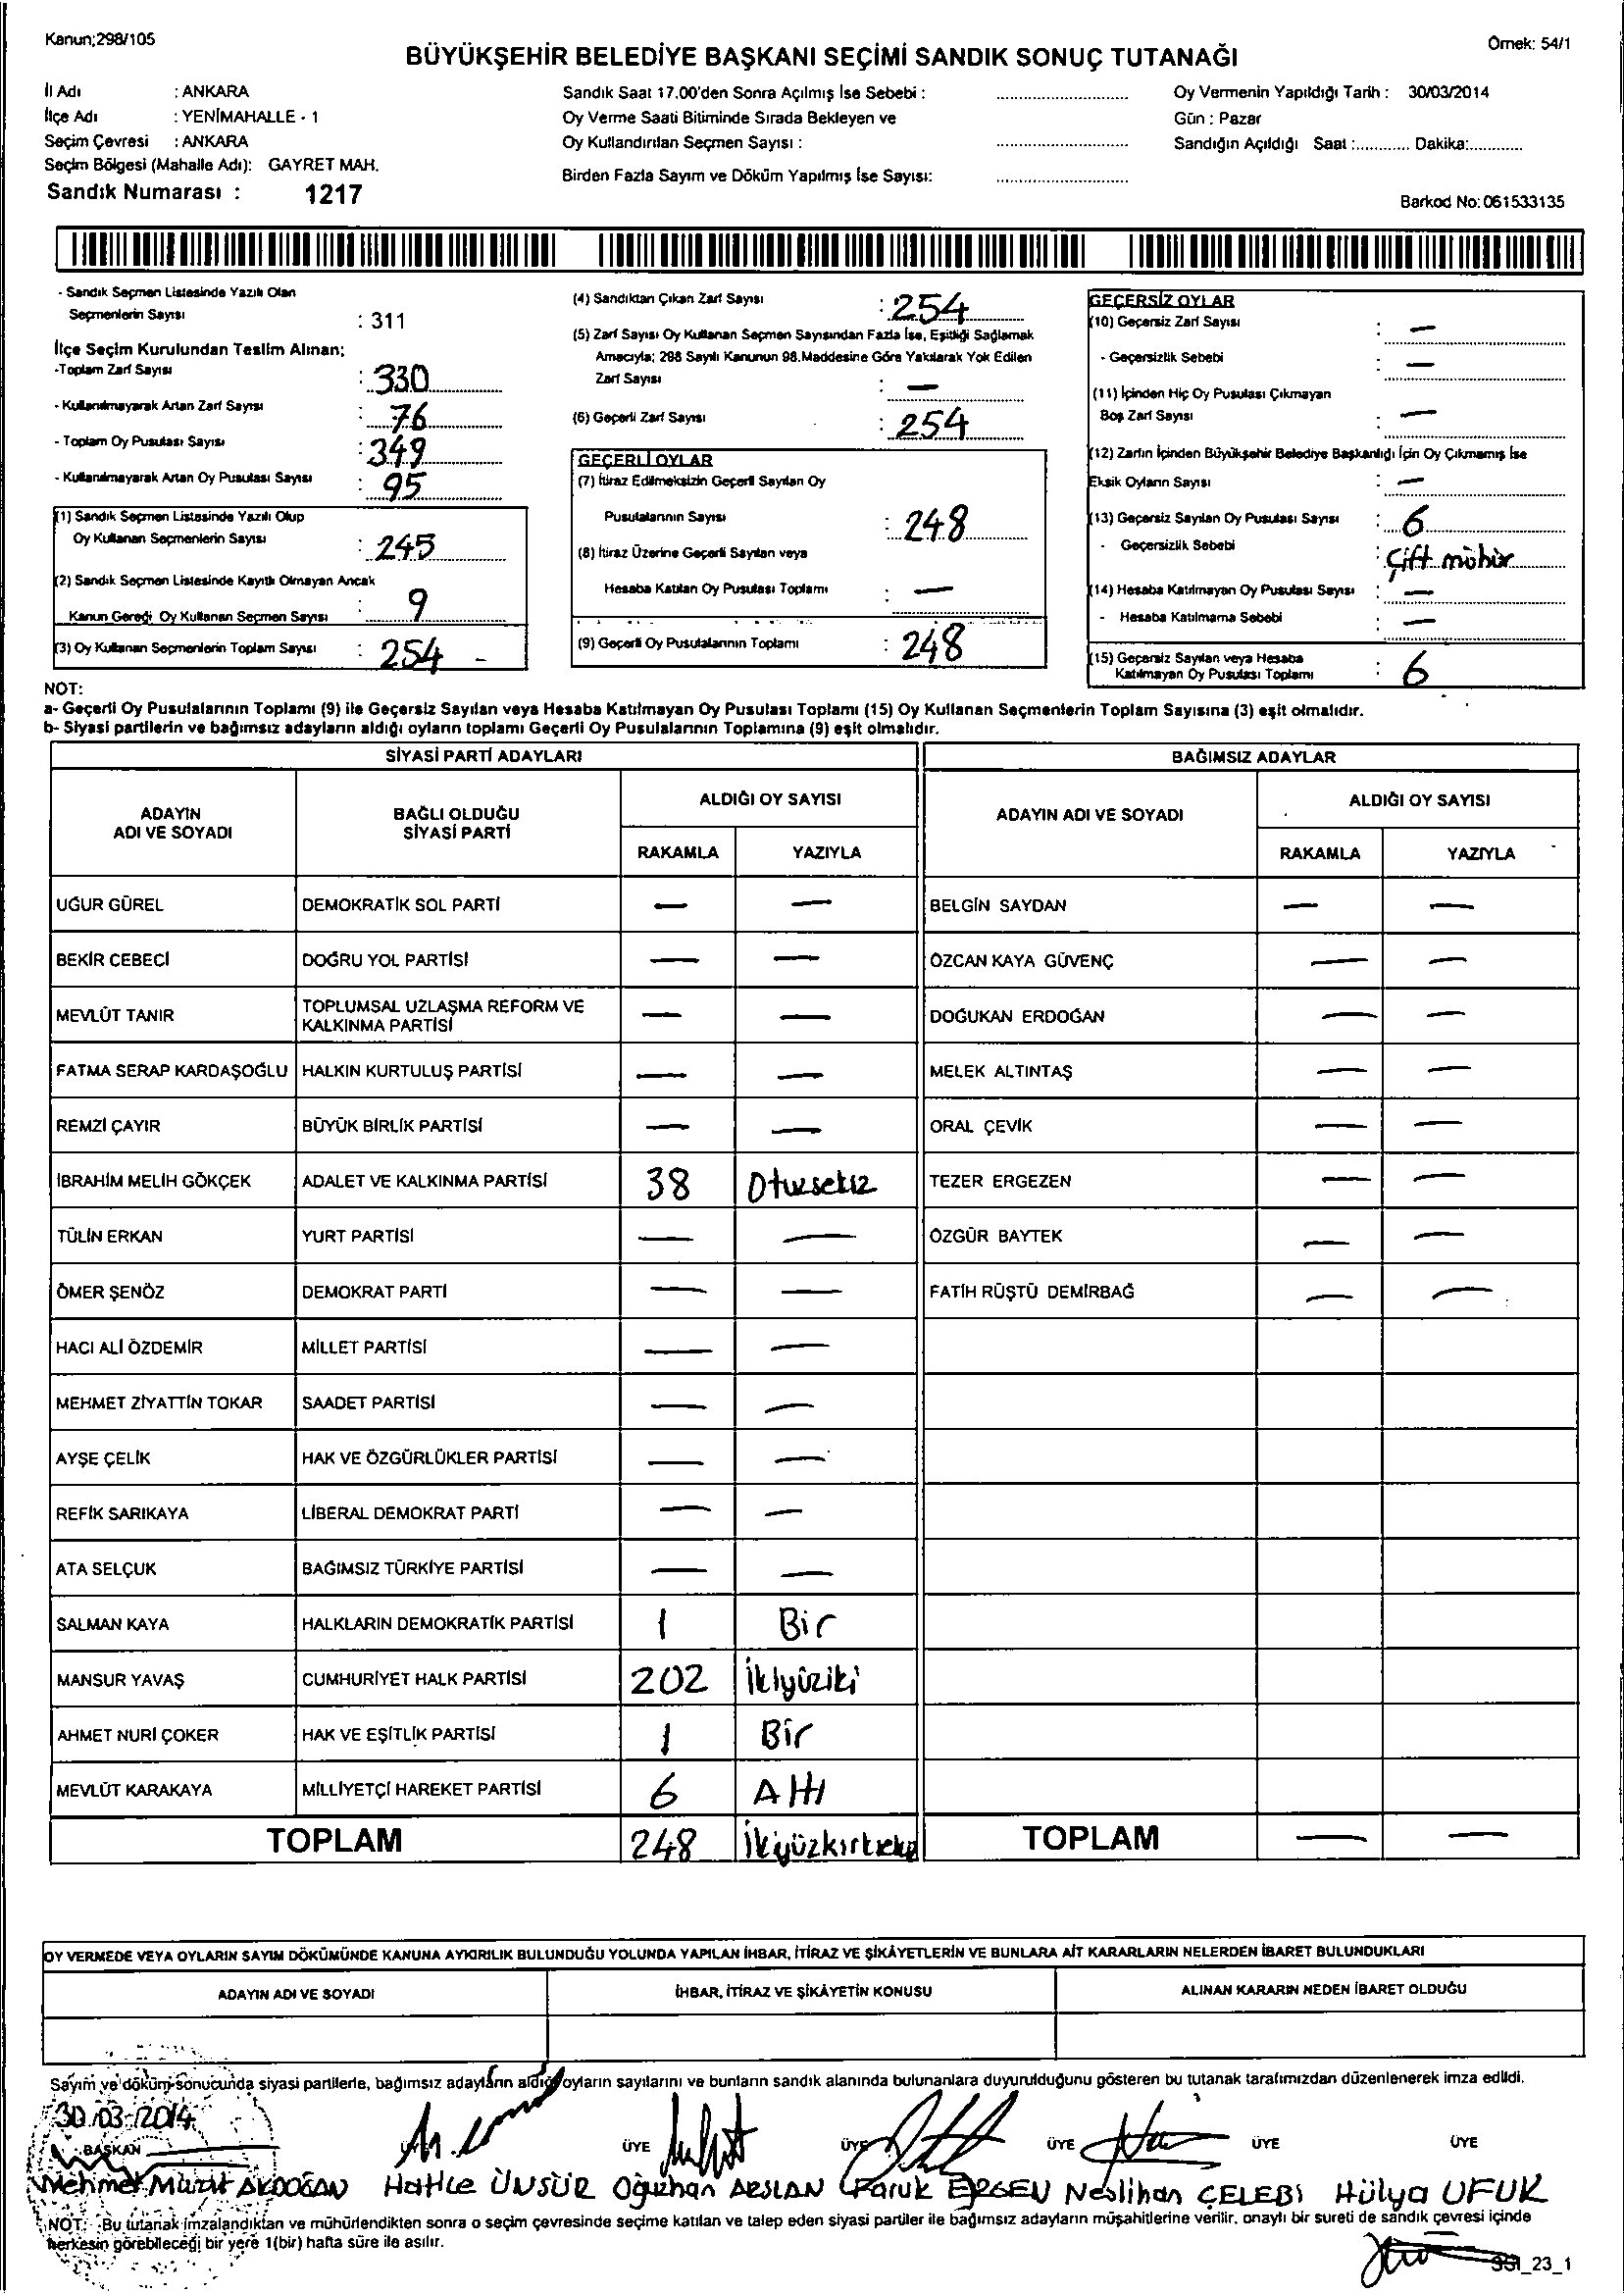 Kanun;298/105
Örnek: 54/1
BÜYÜKŞEHİR BELEDİYE BAŞKANI SEÇİMİ SANDIK SONUÇ TUTANAĞI
İl Adı : ANKARA
İlçe Adı : YENİMAHALLE - 1
Seçim Çevresi : ANKARA
Seçim Bölgesi (Mahalle Adı): GAYRET MAH.
Sandık Numarası : 1217
Sandık Saat 17.00'den Sonra Açılmış İse Sebebi :
Oy Verme Saati Bitiminde Sırada Bekleyen ve
Oy Kullandırılan Seçmen Sayısı :
Birden Fazla Sayım ve Döküm Yapılmış İse Sayısı:
Oy Vermenin Yapıldığı Tarih : 30/03/2014
Gün : Pazar
Sandığın Açıldığı Saat :............ Dakika:............
Barkod No: 061533135
- Sandık Seçmen Listesinde Yazılı Olan
Seçmenlerin Sayısı : 311
İlçe Seçim Kurulundan Teslim Alınan;
-Toplam Zarf Sayısı : 330
- Kullanılmayarak Artan Zarf Sayısı : 76
- Toplam Oy Pusulası Sayısı : 349
- Kullanılmayarak Artan Oy Pusulası Sayısı : 95
(1) Sandık Seçmen Listesinde Yazılı Olup
Oy Kullanan Seçmenlerin Sayısı : 245
(2) Sandık Seçmen Listesinde Kayıtlı Olmayan Ancak
Kanun Gereği Oy Kullanan Seçmen Sayısı : 9
(3) Oy Kullanan Seçmenlerin Toplam Sayısı : 254 -
(4) Sandıktan Çıkan Zarf Sayısı : 254
(5) Zarf Sayısı Oy Kullanan Seçmen Sayısından Fazla İse, Eşitliği Sağlamak
Amacıyla; 298 Sayılı Kanunun 98.Maddesine Göre Yakılarak Yok Edilen
Zarf Sayısı : —
(6) Geçerli Zarf Sayısı : 254
GEÇERLİ OYLAR
(7) İtiraz Edilmeksizin Geçerli Sayılan Oy
Pusulalarının Sayısı : 248
(8) İtiraz Üzerine Geçerli Sayılan veya
Hesaba Katılan Oy Pusulası Toplamı : —
(9) Geçerli Oy Pusulalarının Toplamı : 248
GEÇERSİZ OYLAR
(10) Geçersiz Zarf Sayısı : —
- Geçersizlik Sebebi : —
(11) İçinden Hiç Oy Pusulası Çıkmayan
Boş Zarf Sayısı : —
(12) Zarfın İçinden Büyükşehir Belediye Başkanlığı İçin Oy Çıkmamış İse
Eksik Oyların Sayısı : —
(13) Geçersiz Sayılan Oy Pusulası Sayısı : 6
- Geçersizlik Sebebi : Çift mühür
(14) Hesaba Katılmayan Oy Pusulası Sayısı : —
- Hesaba Katılmama Sebebi : —
(15) Geçersiz Sayılan veya Hesaba
Katılmayan Oy Pusulası Toplamı : 6
NOT:
a- Geçerli Oy Pusulalarının Toplamı (9) ile Geçersiz Sayılan veya Hesaba Katılmayan Oy Pusulası Toplamı (15) Oy Kullanan Seçmenlerin Toplam Sayısına (3) eşit olmalıdır.
b- Siyasi partilerin ve bağımsız adayların aldığı oyların toplamı Geçerli Oy Pusulalarının Toplamına (9) eşit olmalıdır.
SİYASİ PARTİ ADAYLARI BAĞIMSIZ ADAYLAR
ADAYIN ADI VE SOYADI BAĞLI OLDUĞU SİYASİ PARTİ ALDIĞI OY SAYISI ADAYIN ADI VE SOYADI ALDIĞI OY SAYISI
RAKAMLA YAZIYLA RAKAMLA YAZIYLA
UĞUR GÜREL DEMOKRATİK SOL PARTİ — — BELGİN SAYDAN — —
BEKİR CEBECİ DOĞRU YOL PARTİSİ — — ÖZCAN KAYA GÜVENÇ — —
MEVLÜT TANIR TOPLUMSAL UZLAŞMA REFORM VE KALKINMA PARTİSİ — — DOĞUKAN ERDOĞAN — —
FATMA SERAP KARDAŞOĞLU HALKIN KURTULUŞ PARTİSİ — — MELEK ALTINTAŞ — —
REMZİ ÇAYIR BÜYÜK BİRLİK PARTİSİ — — ORAL ÇEVİK — —
İBRAHİM MELİH GÖKÇEK ADALET VE KALKINMA PARTİSİ 38 Otuzsekiz TEZER ERGEZEN — —
TÜLİN ERKAN YURT PARTİSİ — — ÖZGÜR BAYTEK — —
ÖMER ŞENÖZ DEMOKRAT PARTİ — — FATİH RÜŞTÜ DEMİRBAĞ — —
HACI ALİ ÖZDEMİR MİLLET PARTİSİ — —
MEHMET ZİYATTİN TOKAR SAADET PARTİSİ — —
AYŞE ÇELİK HAK VE ÖZGÜRLÜKLER PARTİSİ — —
REFİK SARIKAYA LİBERAL DEMOKRAT PARTİ — —
ATA SELÇUK BAĞIMSIZ TÜRKİYE PARTİSİ — —
SALMAN KAYA HALKLARIN DEMOKRATİK PARTİSİ 1 Bir
MANSUR YAVAŞ CUMHURİYET HALK PARTİSİ 202 İkiyüziki
AHMET NURİ ÇOKER HAK VE EŞİTLİK PARTİSİ 1 Bir
MEVLÜT KARAKAYA MİLLİYETÇİ HAREKET PARTİSİ 6 Altı
TOPLAM 248 İkiyüzkırksekiz TOPLAM — —
OY VERMEDE VEYA OYLARIN SAYIM DÖKÜMÜNDE KANUNA AYKIRILIK BULUNDUĞU YOLUNDA YAPILAN İHBAR, İTİRAZ VE ŞİKÂYETLERİN VE BUNLARA AİT KARARLARIN NELERDEN İBARET BULUNDUKLARI
ADAYIN ADI VE SOYADI İHBAR, İTİRAZ VE ŞİKÂYETİN KONUSU ALINAN KARARIN NEDEN İBARET OLDUĞU
Sayım ve döküm sonucunda siyasi partilerle, bağımsız adayların aldığı oyların sayılarını ve bunların sandık alanında bulunanlara duyurulduğunu gösteren bu tutanak tarafımızdan düzenlenerek imza edildi.
30/03/2014
BAŞKAN ÜYE ÜYE ÜYE ÜYE ÜYE ÜYE
Mehmet Murat AKDOĞAN Hatice ÜNSÜR Oğuzhan ARSLAN Faruk ERGEN Neslihan ÇELEBİ Hülya UFUK
NOT: Bu tutanak imzalandıktan ve mühürlendikten sonra o seçim çevresinde seçime katılan ve talep eden siyasi partiler ile bağımsız adayların müşahitlerine verilir. onaylı bir sureti de sandık çevresi içinde
herkesin görebileceği bir yere 1(bir) hafta süre ile asılır.
SSI_23_1